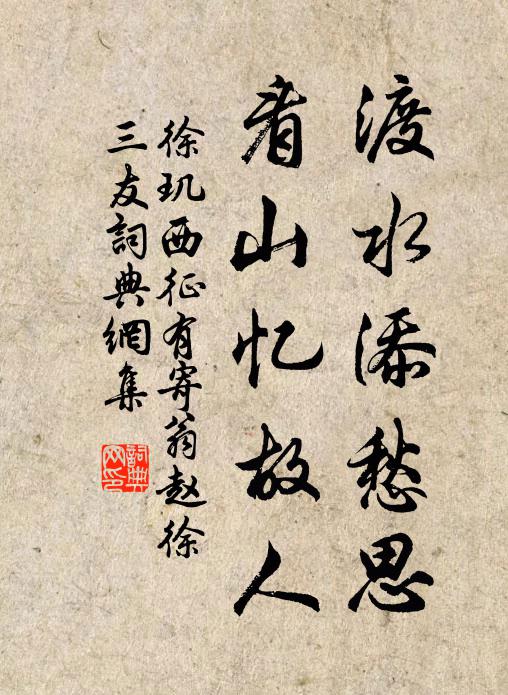 渡水添愁思
看山忆故人
徐玑西征有寄翁赵徐
三友詞典網集
詞典
网印